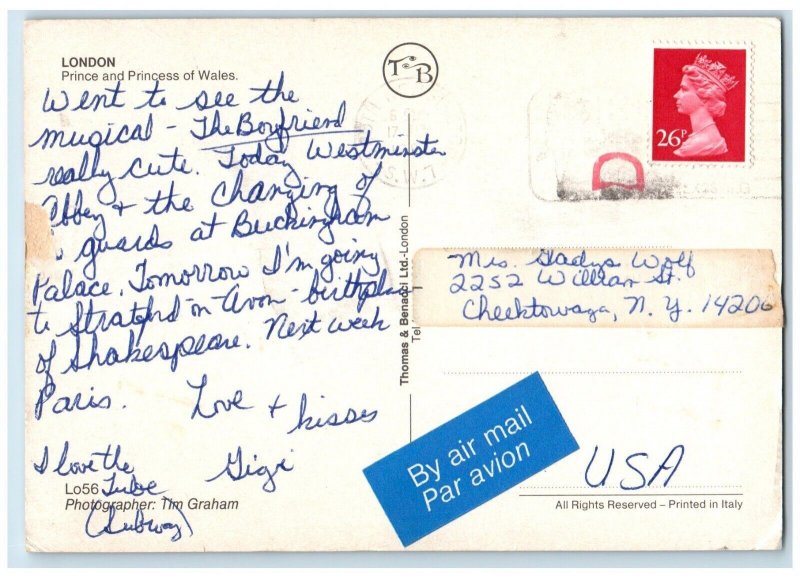 LONDON
Prince and Princess of Wales.
TB
Went to see the
mugical - The Boyfriend
really cute. Today Westminster
Abbey + the changing of
guards at Buckingham
Palace. Tomorrow I'm going
to Stratford-on-Avon-birthplace
of Shakespeare. Next week
Paris. Love + kisses
Gigi
I love the
Tube
(Subway)
Lo56
Photographer: Tim Graham
Thomas & Benacci Ltd.-London
Tel
26P
S.W.1
Mrs. Gladys Wolf
2252 William St.
Cheektowaga, N.Y. 14206
By air mail
Par avion
USA
All Rights Reserved – Printed in Italy